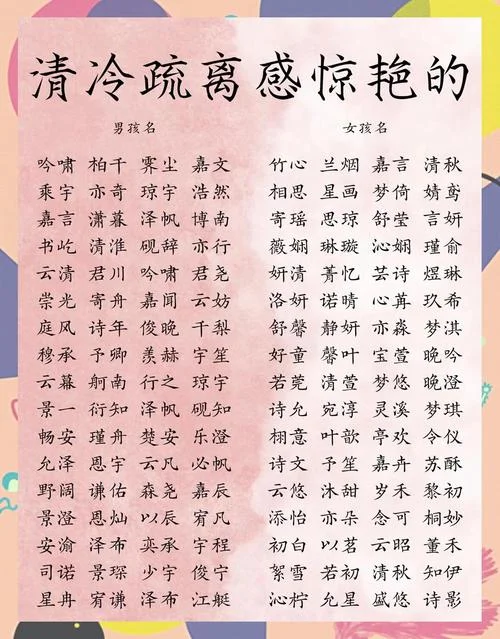 清冷疏离感惊艳的
男孩名 女孩名
吟啸 柏千 霁尘 嘉文 竹心 兰烟 嘉言 清秋
乘宇 亦奇 琼宇 浩然 相思 星画 梦倚 婧鸢
嘉言 潇暮 泽帆 博南 寄瑶 思琼 舒莹 言妍
书屹 清淮 砚辞 亦行 薇娴 琳璇 沁娴 瑾俞
云清 君川 吟啸 君尧 妍清 菁忆 芸诗 煜琳
崇光 寄舟 嘉闻 云妨 洛妍 诺晴 心苒 玖希
庭风 诗年 俊晚 千梨 舒馨 静妍 亦淼 梦淇
穆承 予卿 羡赫 宇笙 好童 馨叶 宝萱 晚吟
云暮 舸南 行之 琼宇 若莞 清萱 梦悠 晚澄
景一 衍知 泽帆 砚知 诗允 宛淳 灵溪 梦琪
畅安 瑾舟 楚安 乐澄 栩意 叶歆 亭欢 令仪
允泽 恩宇 云凡 必帆 诗文 予笙 嘉卉 苏酥
野阔 谦佑 森尧 嘉辰 云悠 沐甜 岁禾 黎初
景澄 恩灿 以辰 宥凡 添怡 亦朵 念可 桐妙
安渝 泽布 奕承 宇程 初白 以茗 云昭 董禾
司诺 景琛 少宇 俊宁 絮雪 若初 清秋 知伊
星冉 宥谦 泽布 江艇 沁柠 允星 盛悠 诗影